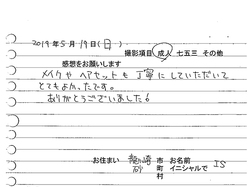 2019年5月19日(日)
撮影項目 成人 七五三 その他
感想をお願いします
メイクや ヘアセットも 丁寧に していただいて
とてもよかったです。
ありがとうございました!
お住まい 龍ヶ崎 市 お名前
町 イニシャルで IS
村